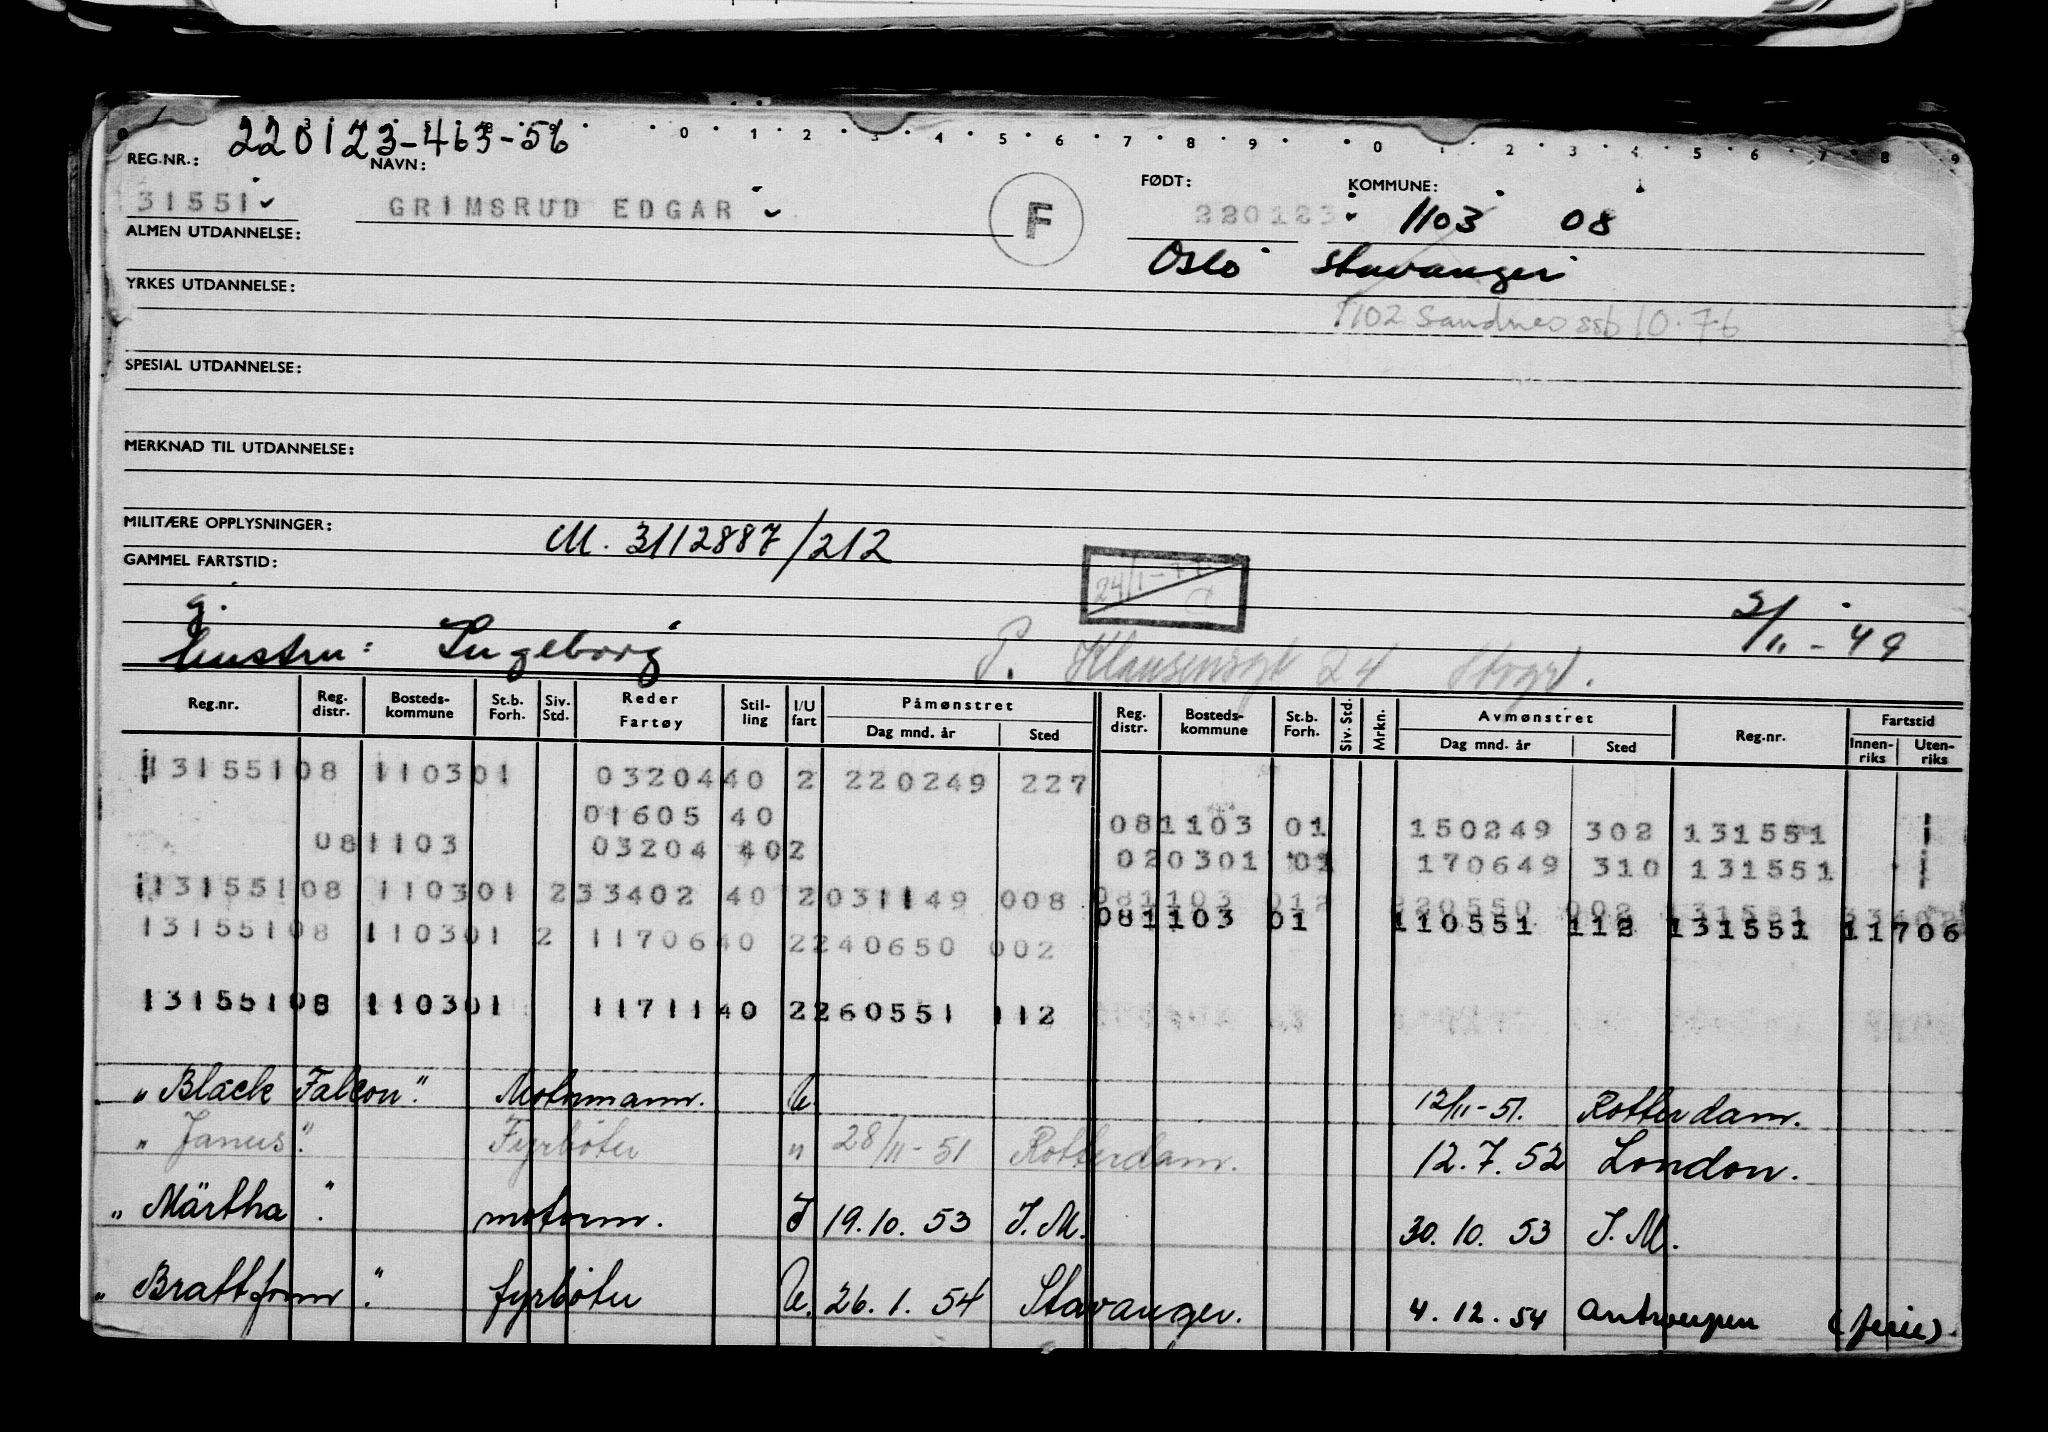 0 1 2 3 4 5 6 7 8 9 0 1 2 3 4 5 6 7 8 9
220123-463-56
REG.NR.: NAVN: FØDT: KOMMUNE:
31551 GRIMSRUD EDGAR F 220123 1103 08
ALMEN UTDANNELSE: Oslo Stavanger
YRKES UTDANNELSE:
1102 Sandnes ssb 10.76
SPESIAL UTDANNELSE:
MERKNAD TIL UTDANNELSE:
MILITÆRE OPPLYSNINGER: M. 3112887/212
GAMMEL FARTSTID:
g. 2/11-49
hustru: Ingeborg P. Klausensgt 24 Stvgr.
Reg.nr. Reg. distr. Bosteds-kommune St.b. Forh. Siv. Std. Reder Fartøy Stil-ling I/U fart Påmønstret Dag mnd. år Sted Reg. distr. Bosteds-kommune St.b. Forh. Siv. Std. Mrkn. Avmønstret Dag mnd. år Sted Reg.nr. Fartstid Innen-riks Uten-riks
131551 08 1103 01 03204 40 2 220249 227
01605 40 08 1103 01 150249 302 131551
08 1103 03204 40 2 02 0301 01 170649 310 131551
131551 08 1103 01 2 33402 40 2 031149 008 08 1103 01 2 220550 002 131551 33402
131551 08 1103 01 2 11706 40 2 240650 002 08 1103 01 110551 112 131551 11706
131551 08 1103 01 11711 40 2 260551 112
"Black Falcon". Motormann. U. 12/11-51. Rotterdam.
"Janus". Fyrbøter " 28/11-51 Rotterdam. 12.7.52 London.
"Märtha". motorm. I 19.10.53 I.M. 30.10.53 I.M.
"Brattfonn". fyrbøter U. 26.1.54 Stavanger. 4.12.54 Antwerpen (ferie)